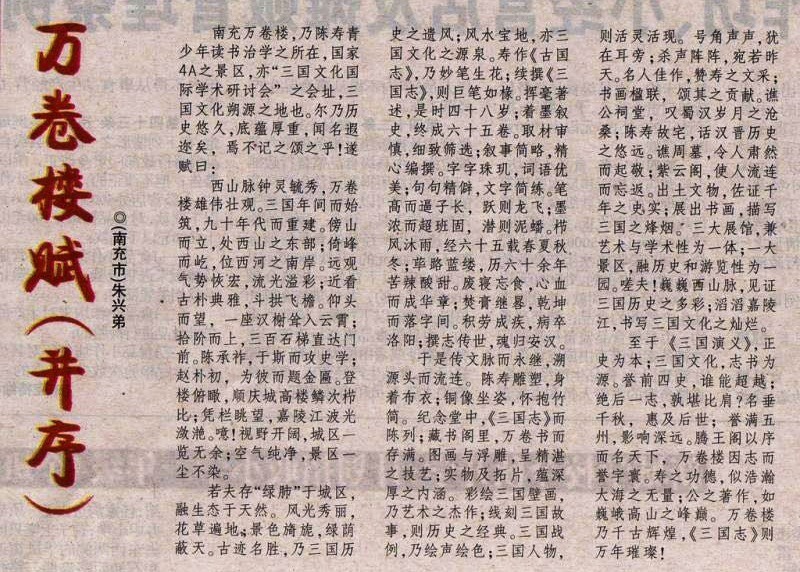 万卷楼赋(并序)
◎(南充市)朱兴弟
南充万卷楼,乃陈寿青
少年读书治学之所在,国家
4A之景区,亦“三国文化国
际学术研讨会”之会址,三
国文化朔源之地也。尔乃历
史悠久,底蕴厚重,闻名遐
迩矣,焉不记之颂之乎!遂
赋曰:
西山脉钟灵毓秀,万卷
楼雄伟壮观。三国年间而始
筑,九十年代而重建。傍山
而立,处西山之东部;倚峰
而屹,位西河之南岸。远观
气势恢宏,流光溢彩;近看
古朴典雅,斗拱飞檐。仰头
而望,一座汉榭耸入云霄;
拾阶而上,三百石梯直达门
前。陈承祚,于斯而攻史学;
赵朴初,为彼而题金匾。登
楼俯瞰,顺庆城高楼鳞次栉
比;凭栏眺望,嘉陵江波光
潋滟。噫!视野开阔,城区一
览无余;空气纯净,景区一
尘不染。
若夫存“绿肺”于城区,
融生态于天然。风光秀丽,
花草遍地;景色旖旎,绿荫
蔽天。古迹名胜,乃三国历
史之遗风;风水宝地,亦三
国文化之源泉。寿作《古国
志》,乃妙笔生花;续撰《三
国志》,则巨笔如椽。挥毫著
述,是时四十八岁;着墨叙
史,终成六十五卷。取材审
慎,细致筛选;叙事简略,精
心编撰。字字珠玑,词语优
美;句句精僻,文字简练。笔
高而逼子长,跃则龙飞;墨
浓而超班固,潜则泥蟠。栉
风沐雨,经六十五载春夏秋
冬;荜路蓝缕,历六十余年
苦辣酸甜。废寝忘食,心血
而成华章;焚膏继晷,乾坤
而落字间。积劳成疾,病卒
洛阳;撰志传世,魂归安汉。
于是传文脉而永继,溯
源头而流连。陈寿雕塑,身
着布衣;铜像坐姿,怀抱竹
简。纪念堂中,《三国志》而
陈列;藏书阁里,万卷书而
存满。图画与浮雕,呈精湛
之技艺;实物及拓片,蕴深
厚之内涵。彩绘三国壁画,
乃艺术之杰作;线刻三国故
事,则历史之经典。三国战
例,乃绘声绘色;三国人物,
则活灵活现。号角声声,犹
在耳旁;杀声阵阵,宛若昨
天。名人佳作,赞寿之文采;
书画楹联,颂其之贡献。谯
公祠堂,叹蜀汉岁月之沧
桑;陈寿故宅,话汉晋历史
之悠远。谯周墓,令人肃然
而起敬;紫云阁,使人流连
而忘返。出土文物,佐证千
年之史实;展出书画,描写
三国之烽烟。三大展馆,兼
艺术与学术性为一体;一大
景区,融历史和游览性为一
园。嗟夫!巍巍西山脉,见证
三国历史之多彩;滔滔嘉陵
江,书写三国文化之灿烂。
至于《三国演义》,正
史为本;三国文化,志书为
源。誉前四史,谁能超越;
绝后一志,孰堪比肩?名垂
千秋,惠及后世;誉满五
州,影响深远。腾王阁以序
而名天下,万卷楼因志而
誉宇寰。寿之功德,似浩瀚
大海之无量;公之著作,如
巍峨高山之峰巅。万卷楼
乃千古辉煌,《三国志》则
万年璀璨!